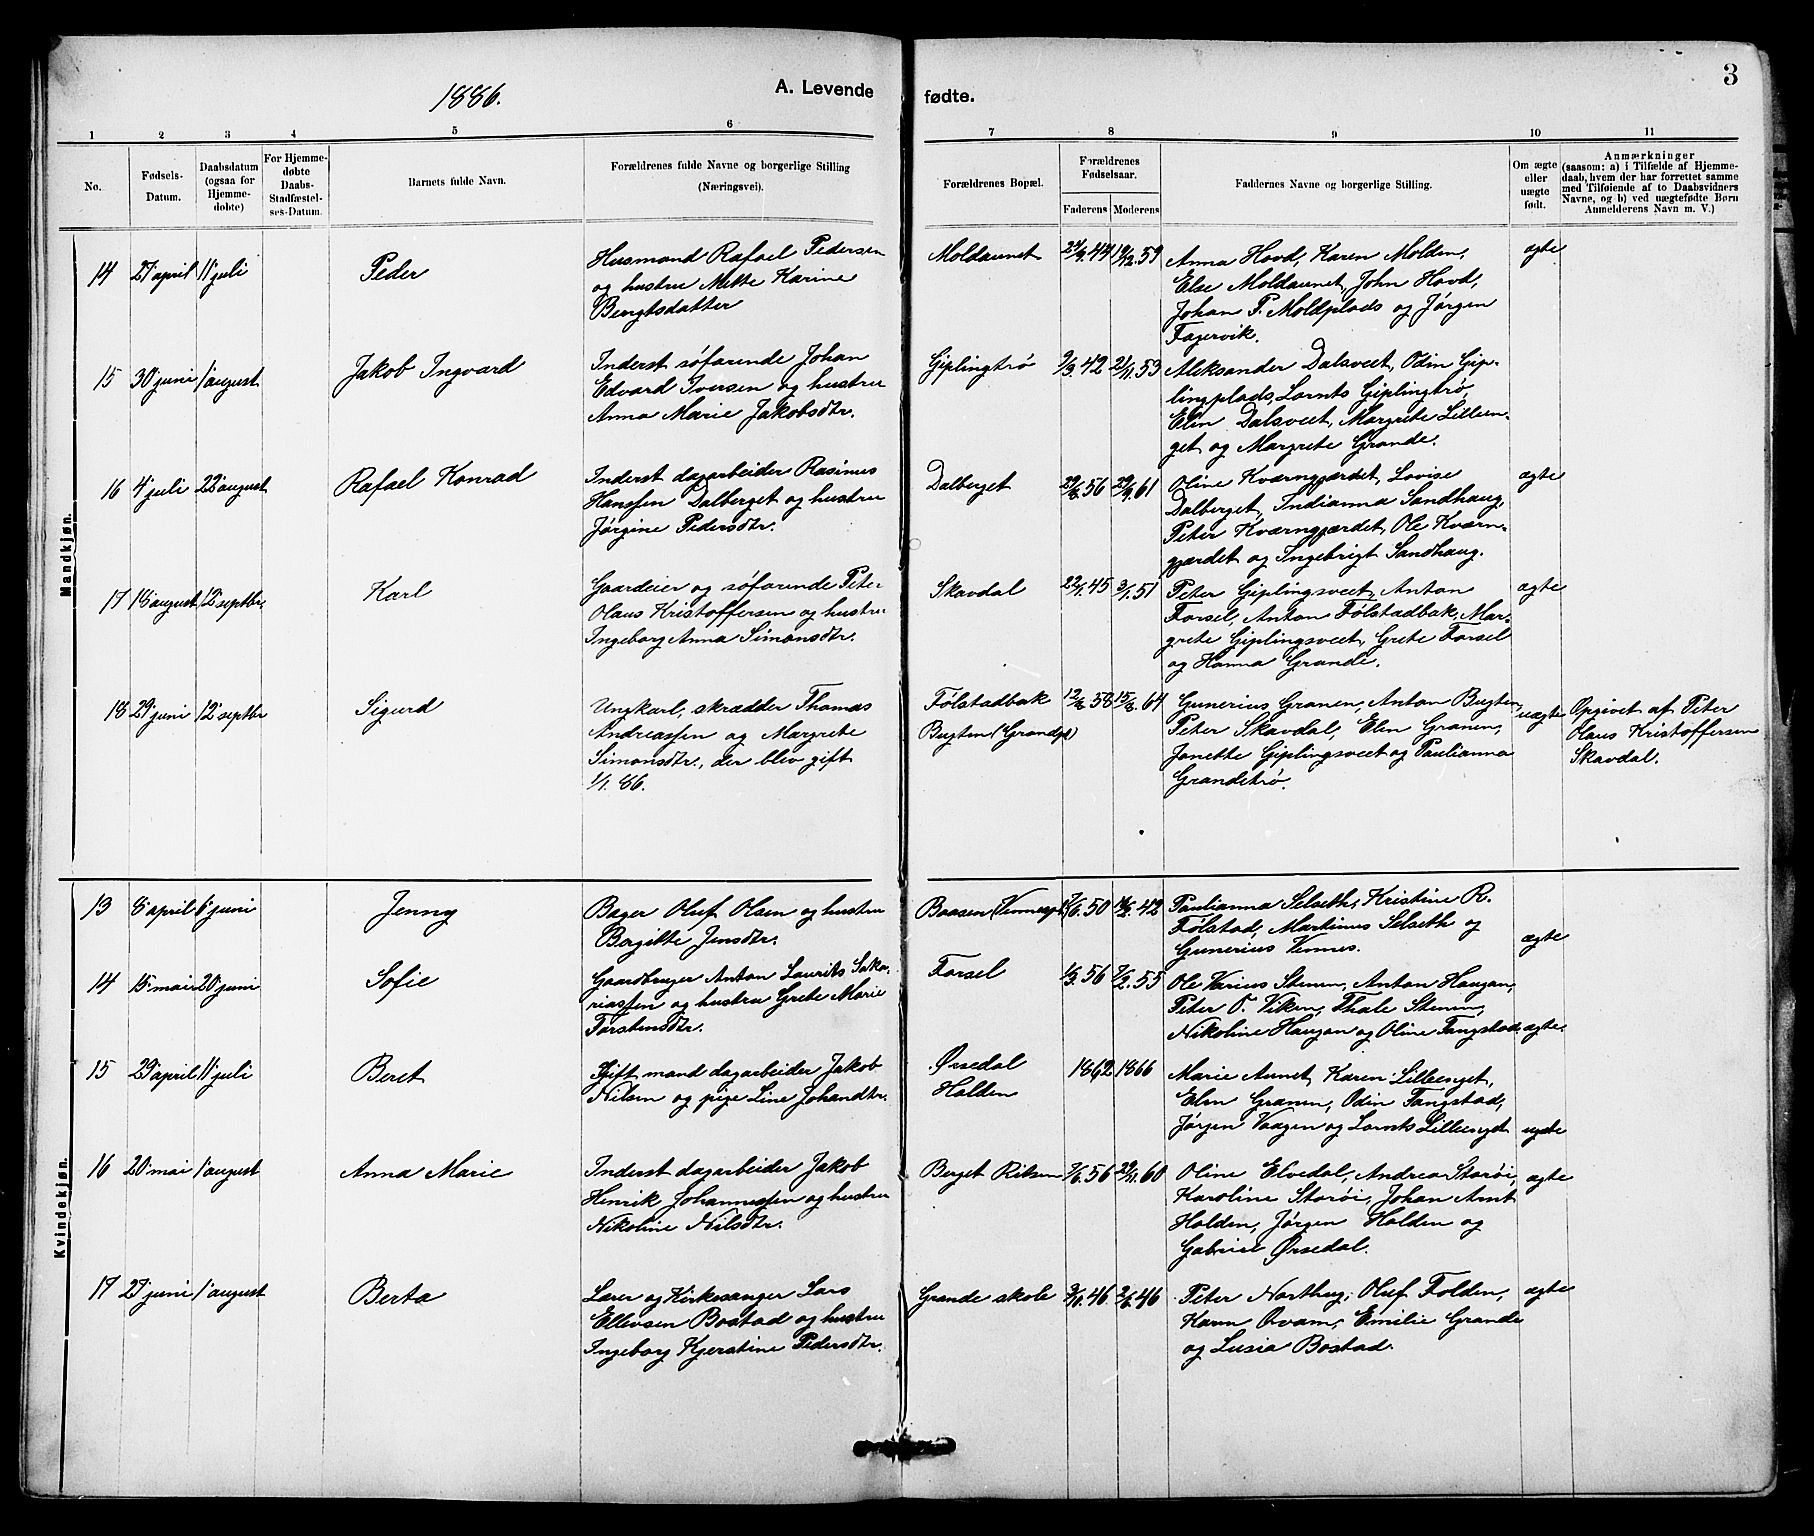 3
1886.
A. Levende fødte.
1 2 3 4 5 6 7 8 9 10 11
No.
Fødsels-
Datum.
Daabsdatum
(ogsaa for
Hjemme-
døbte)
For Hjemme-
døbte
Daabs-
Stadfæstel-
ses-Datum.
Barnets fulde Navn.
Forældrenes fulde Navne og borgerlige Stilling
(Næringsvei).
Forældrenes Bopæl.
Forældrenes
Fødselsaar.
Faderens Moderens
Faddernes Navne og borgerlige Stilling.
Om ægte
eller
uægte
født.
Anmærkninger
(saasom: a) i Tilfælde af Hjemme-
daab, hvem der har forrettet samme
med Tilføiende af to Daabsvidners
Navne, og b) ved uægtefødte Børn
Anmelderens Navn m. V.)
Mandkjøn.
14 27 april 11 juli
Peder
Husmand Rafael Pedersen
og hustru Mette Karine
Bengtsdatter
Moldaunet
44 59
Anna Hovd, Karen Molden,
Else Moldaunet, John Hovd,
Johan P. Moldplads og Jørgen
Fagervik.
ægte
15 30 juni 1 august
Jakob Ingvard
Inderst søfarende Johan
Edvard Iversen og hustru
Anna Marie Jakobsdtr.
Giplingtrø
42 21/11.53
Aleksander Dalsveet, Odin Gip-
lingplads, Lornts Giplingtrø,
Elen Dalsveet, Margrete Lilleen-
get og Margrete Grande.
16 4 juli 22 august
Rafael Konrad
Inderst dagarbeider Rasimus
Hanssen Dalberget og hustru
Jørgine Pedersdtr.
Dalberget
56 29/9.61
Oline Kværngjærdet, Lovise
Dalberget, Indianna Sandhaug,
Peter Kværngjærdet, Ole Kværn-
gjærdet og Ingebrigt Sandhaug.
ægte
17 18 august 12 septbr.
Karl
Gaardeier og søfarende Peter
Olaus Kristoffersen og hustru
Ingeborg Anna Simonsdtr.
Skavdal
45 3/1.51
Peter Giplingsveet, Anton
Forsel, Anton Følstadbak, Mar-
grete Giplingsveet, Grete Forsel
og Hanna Grande.
ægte
18 29 juni 12 septbr
Sigurd
Ungkarl, skrædder Thomas
Andreassen og Margrete
Simonsdtr., der blev gift
1/7. 86.
Følstadbak
Bugten (Grandpl)
58 64
Gunerius Granen, Anton Bugten,
Peter Skavdal, Elen Granen,
Janette Giplingsveet og Paulianna
Grandetrø.
uægte
Opgivet af Peter
Olaus Kristoffersen
Skavdal.
Kvindekjøn.
13 8 april 6 juni
Jenny
Bager Oluf Olsen og hustru
Bergitte Jensdtr.
Baasen (Vennespl)
50 42
Paulianna Selseth, Kristine R.
Følstad, Martinus Selseth og
Gunerius Vennes.
ægte
14 15 mai 20 juni
Sofie
Gaardbruger Anton Laurits Saka-
riassen og hustru Grete Marie
Torstensdtr.
Forsel
56 7/2.55
Ole Varius Stenen, Anton Haugan,
Peter O. Viken, Thale Stenen,
Nikoline Haugan og Oline Tangstad.
ægte.
15 29 april 11 juli
Beret
Gift mand dagarbeider Jakob
Nilsen og pige Line Johandtr.
Ørsedal
Holden
1862 1866
Marie Aunet, Karen Lilleenget,
Elen Granen, Odin Tangstad,
Jørgen Vaagen og Lornts Lilleenget
uægte
16 20 mai 1 august
Anna Marie
Inderst dagarbeider Jakob
Henrik Johannessen og hustru
Nikoline Nilsdtr.
Berget Ritsen
56 29/11.60
Oline Elvedal, Andrea Starøi,
Karoline Starøi, Johan Arnt
Holden, Jørgen Holden og
Gabriel Ørsedal.
ægte
17 27 juni 1 august
Berta
Lærer og Kirkesanger Lars
Ellevsen Bostad og hustru
Ingeborg Kjerstine Pedersdtr.
Grande skole
46 46
Peter Northug, Oluf Folden,
Karen Kvam, Emilie Grande
og Lusia Bostad.
ægte